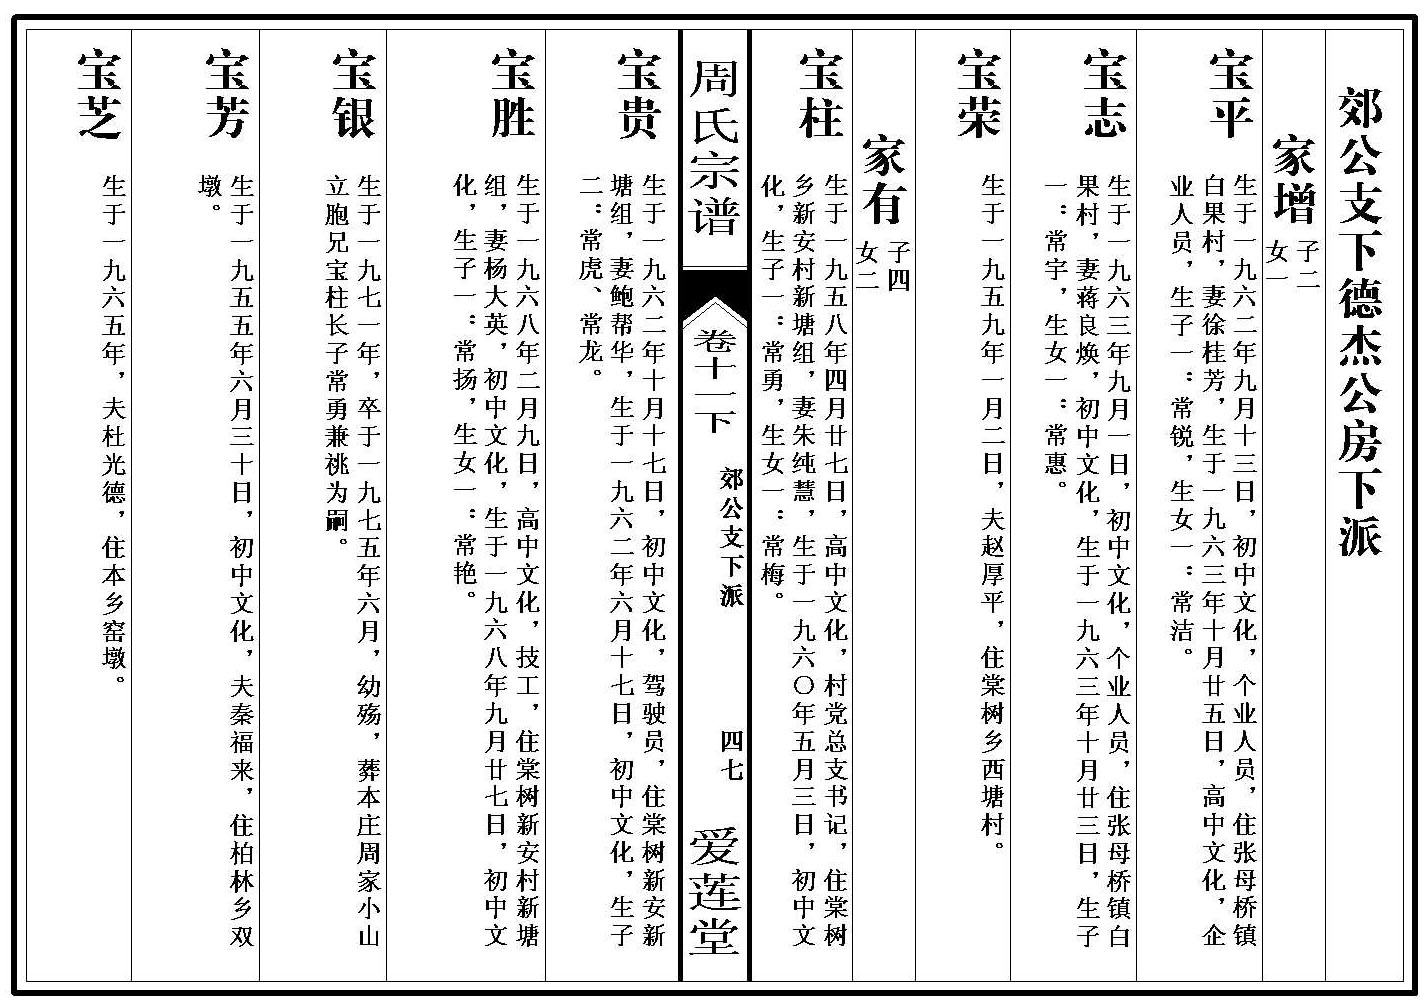 郊公支下德杰公房下派
家增
子二
女一
宝平
生于一九六二年九月十三日，初中文化，个业人员，住张母桥镇
白果村，妻徐桂芳，生于一九六三年十月廿五日，高中文化，企
业人员，生子一：常锐，生女一：常洁。
宝志
生于一九六三年九月一日，初中文化，个业人员，住张母桥镇白
果村，妻蒋良焕，初中文化，生于一九六三年十月廿三日，生子
一：常宇，生女一：常惠。
宝荣
生于一九五九年一月二日，夫赵厚平，住棠树乡西塘村。
家有
子四
女二
宝柱
生于一九五八年四月廿七日，高中文化，村党总支书记，住棠树
乡新安村新塘组，妻朱纯慧，生于一九六〇年五月三日，初中文
化，生子一：常勇，生女一：常梅。
周氏宗谱
卷十二下
郊公支下派
四七
爱莲堂
宝贵
生于一九六二年十月十七日，初中文化，驾驶员，住棠树新安新
塘组，妻鲍帮华，生于一九六二年六月十七日，初中文化，生子
二：常虎、常龙。
宝胜
生于一九六八年二月九日，高中文化，技工，住棠树新安村新塘
组，妻杨大英，初中文化，生于一九六八年九月廿七日，初中文
化，生子一：常扬，生女一：常艳。
宝银
生于一九七一年，卒于一九七五年六月，幼殇，葬本庄周家小山
立胞兄宝柱长子常勇兼祧为嗣。
宝芳
生于一九五五年六月三十日，初中文化，夫秦福来，住柏林乡双
墩。
宝芝
生于一九六五年，夫杜光德，住本乡窑墩。